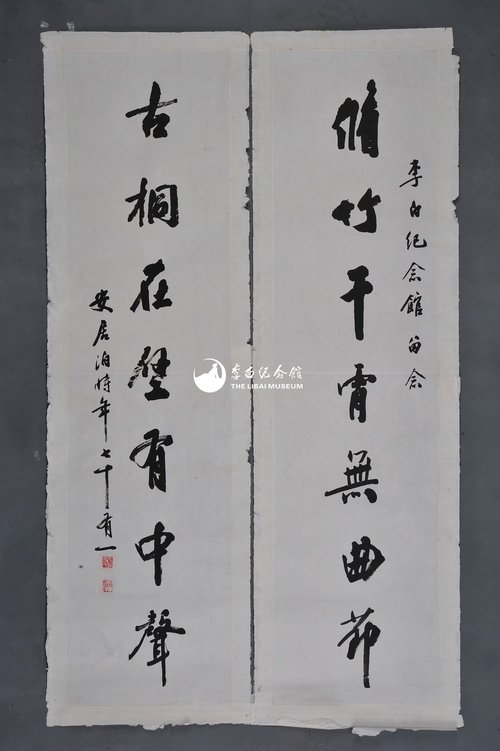 李白纪念館留念
脩竹干霄無曲節
古桐在壁有中聲
安居泊时年七十有一
李白纪念館
THE LIBAI MUSEUM